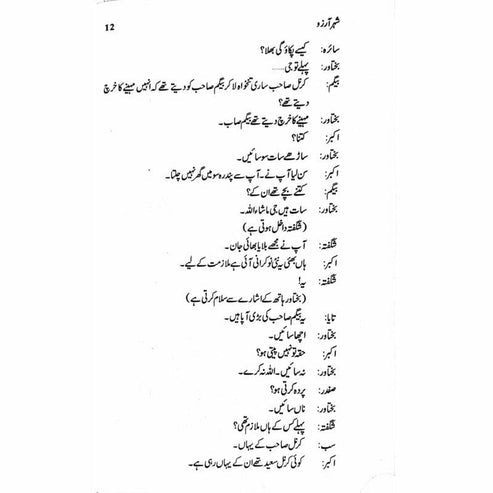 شہر آرزو
12
سائرہ: کیسے پکاؤ گی بھلا؟
بختاور: پہلے تو جی......
بیگم: کرنل صاحب ساری تنخواہ لا کر بیگم صاحب کو دیتے تھے کہ انہیں مہینے کا خرچ
دیتے تھے؟
بختاور: مہینے کا خرچ دیتے تھے بیگم صاب۔
اکبر: کتنا؟
بختاور: ساڑھے سات سو سائیں۔
اکبر: سن لیا آپ نے۔ آپ سے پندرہ سو میں گھر نہیں چلتا۔
بیگم: کتنے بچے تھے ان کے؟
بختاور: سات ہیں جی ماشاء اللہ۔
(شگفتہ داخل ہوتی ہے)
شگفتہ: آپ نے مجھے بلایا بھائی جان۔
اکبر: ہاں بھئی یہ نئی نوکرانی آئی ہے ملازمت کے لیے۔
شگفتہ: یہ!
(بختاور ہاتھ کے اشارے سے سلام کرتی ہے)
تایا: یہ بیگم صاحب کی بڑی آپا ہیں۔
بختاور: اچھا سائیں۔
اکبر: حقہ تو نہیں پیتی ہو؟
بختاور: نہ سائیں۔ اللہ نہ کرے۔
صفدر: پردہ کرتی ہو؟
بختاور: ناں سائیں۔
شگفتہ: پہلے کس کے ہاں ملازم تھی؟
سب: کرنل صاحب کے یہاں۔
اکبر: کوئی کرنل سعید تھے ان کے یہاں رہی ہے۔